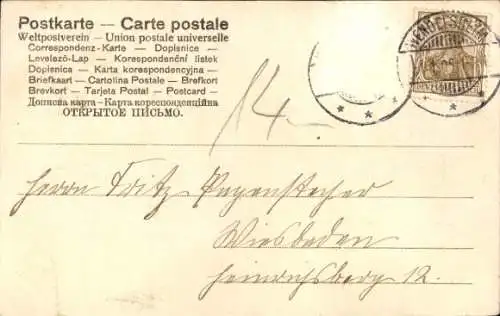 Postkarte — Carte postale
Weltpostverein — Union postale universelle
Correspondenz-Karte — Dopisnice —
Levelező-Lap — Korespondenční lístek
Dopisnica — Karta korespondencyjna —
Briefkaart — Cartolina Postale — Brefkort
Brevkort — Tarjeta Postal — Postcard —
Дописна карта — Карта кореспонденційна
ОТКРЫТОЕ ПИСЬМО.
14 —
Herrn Fritz Pagenstecher
Wiesbaden
Heinrichsberg 12.